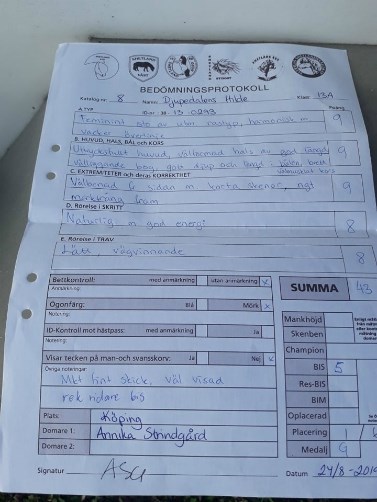 BEDÖMNINGSPROTOKOLL
Katalog nr. 8 Namn: Djupedalens Hilde Klass: 13A
ID.nr: 13-0293 Poäng
A. TYP
Feminint sto av utm. resliga, harmonisk m 9
vacker överlinje
B. HUVUD, HALS, BÅL och KORS
Uttrycksfullt huvud, välformad hals av god längd 9
välliggande bog, god djup och
C. EXTREMITETER och deras KORREKTHET
Välbenad fr sidan m korta skenor, ngt 9
fram
D. Rörelse i SKRITT
Naturlig m god energi 8
E. Rörelse i TRAV
Lätt, vägvinnande 8
Bettkontroll: med anmärkning utan anmärkning x
Anmärkning:
Ögonfärg: Blå Mörk x
Notering:
ID-Kontroll mot hästpass: med anmärkning Ja
Notering:
Visar tecken på man-och svansskorv: Ja Nej x
Övriga noteringar:
Mkt fint skick, väl visad
Plats: Köping
Domare 1: Annika Strindgård
Domare 2:
Signatur ASG
SUMMA 43
Mankhöjd
Skenben
Champion
BIS 5
Res-BIS
BIM
Oplacerad
Placering 1 /
Medalj G
Datum 24/8-2019